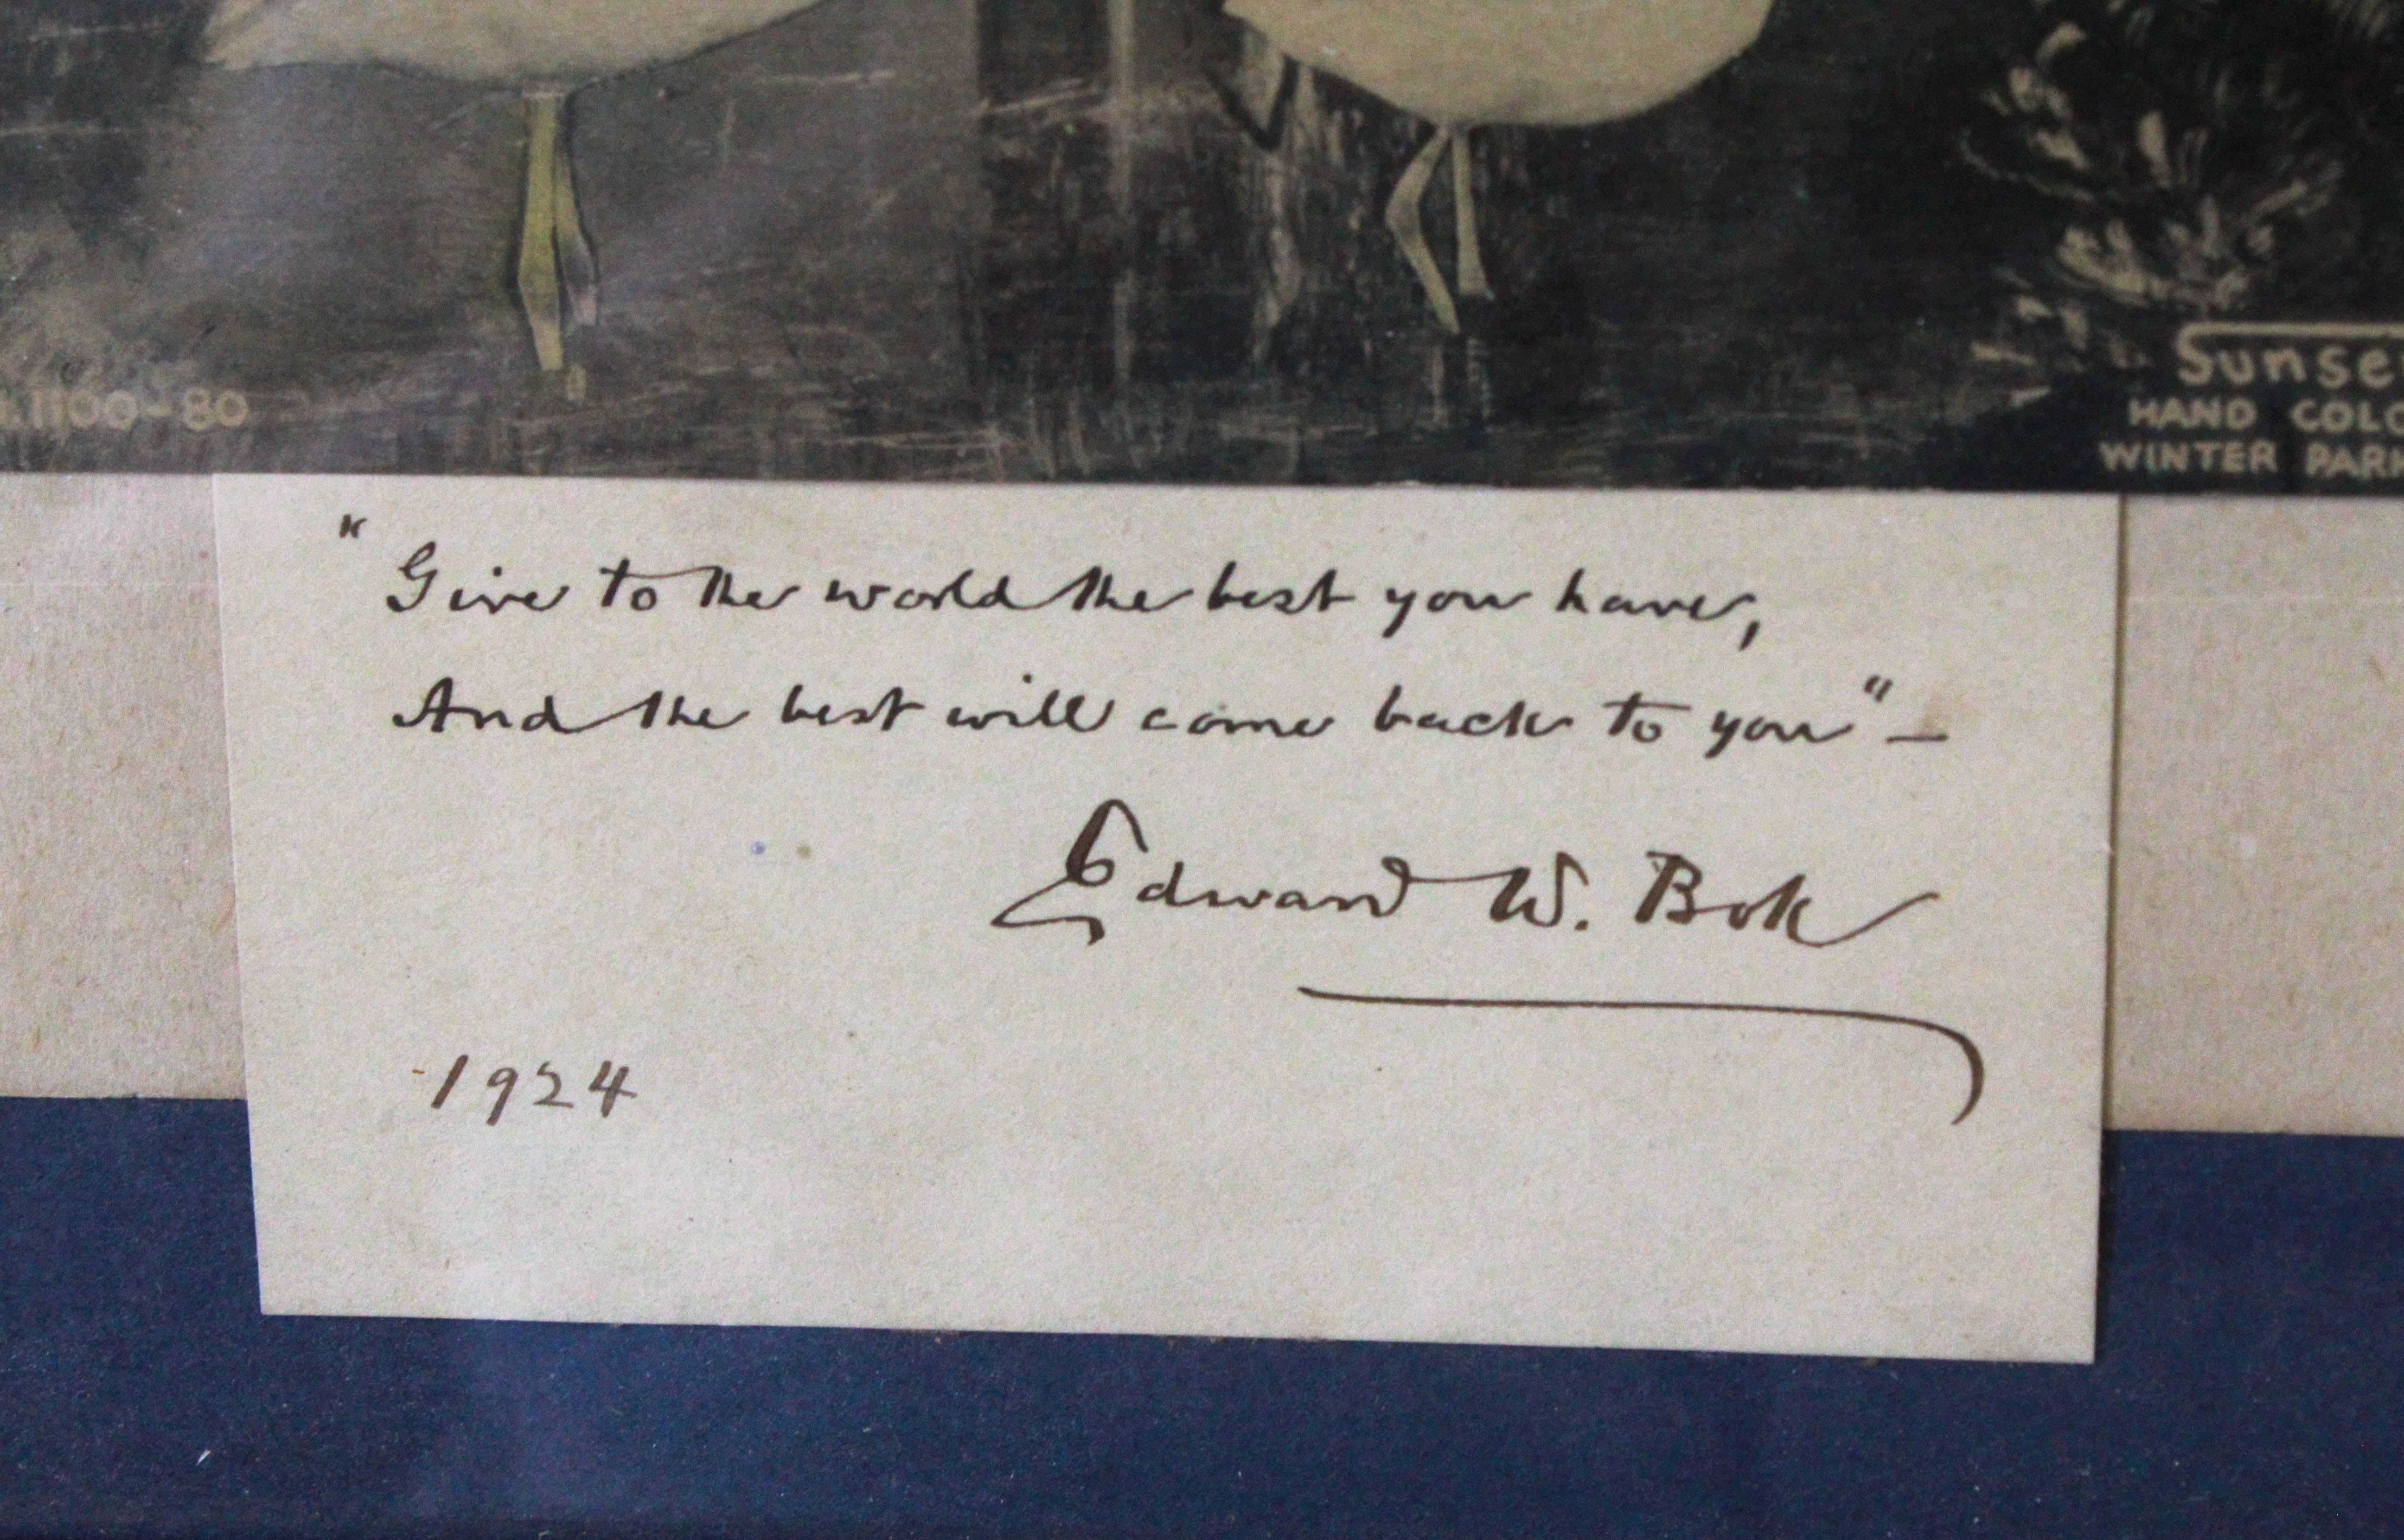 1100-80
Sunse
HAND COLO
WINTER PARK
"Give to the world the best you have,
And the best will come back to you" —
Edward W. Bok
1924